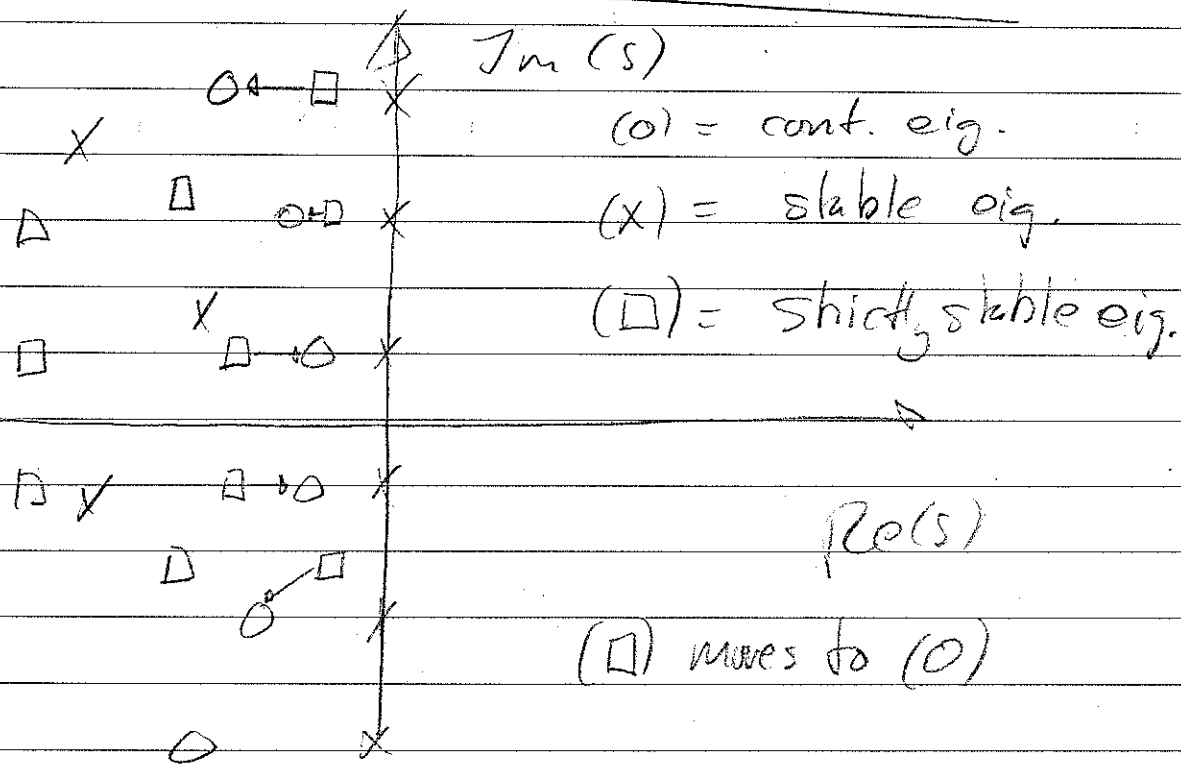 Im (s)
(o) = cont. eig.
(x) = stable eig.
(□) = strictly stable eig.
Re(s)
(□) moves to (O)